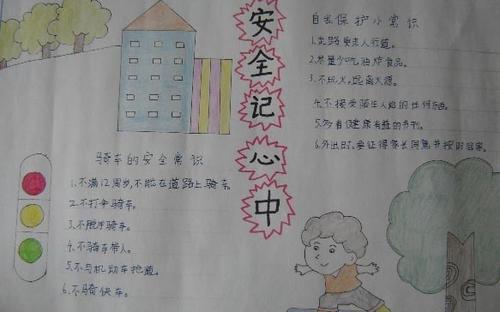 安全记心中
自我保护小常识
1.走路要走人行道。
2.尽量少吃油炸食品。
3.不玩火,远离火源。
4.不接受陌生人给的任何东西。
5.多看健康有益的书刊。
6.外出时,要征得家长同意并按时回家。
骑车的安全常识
1.不满12周岁,不能在道路上骑车。
2.不打伞骑车。
3.不脱手骑车。
4.不骑车带人。
5.不与机动车抢道。
6.不骑快车。